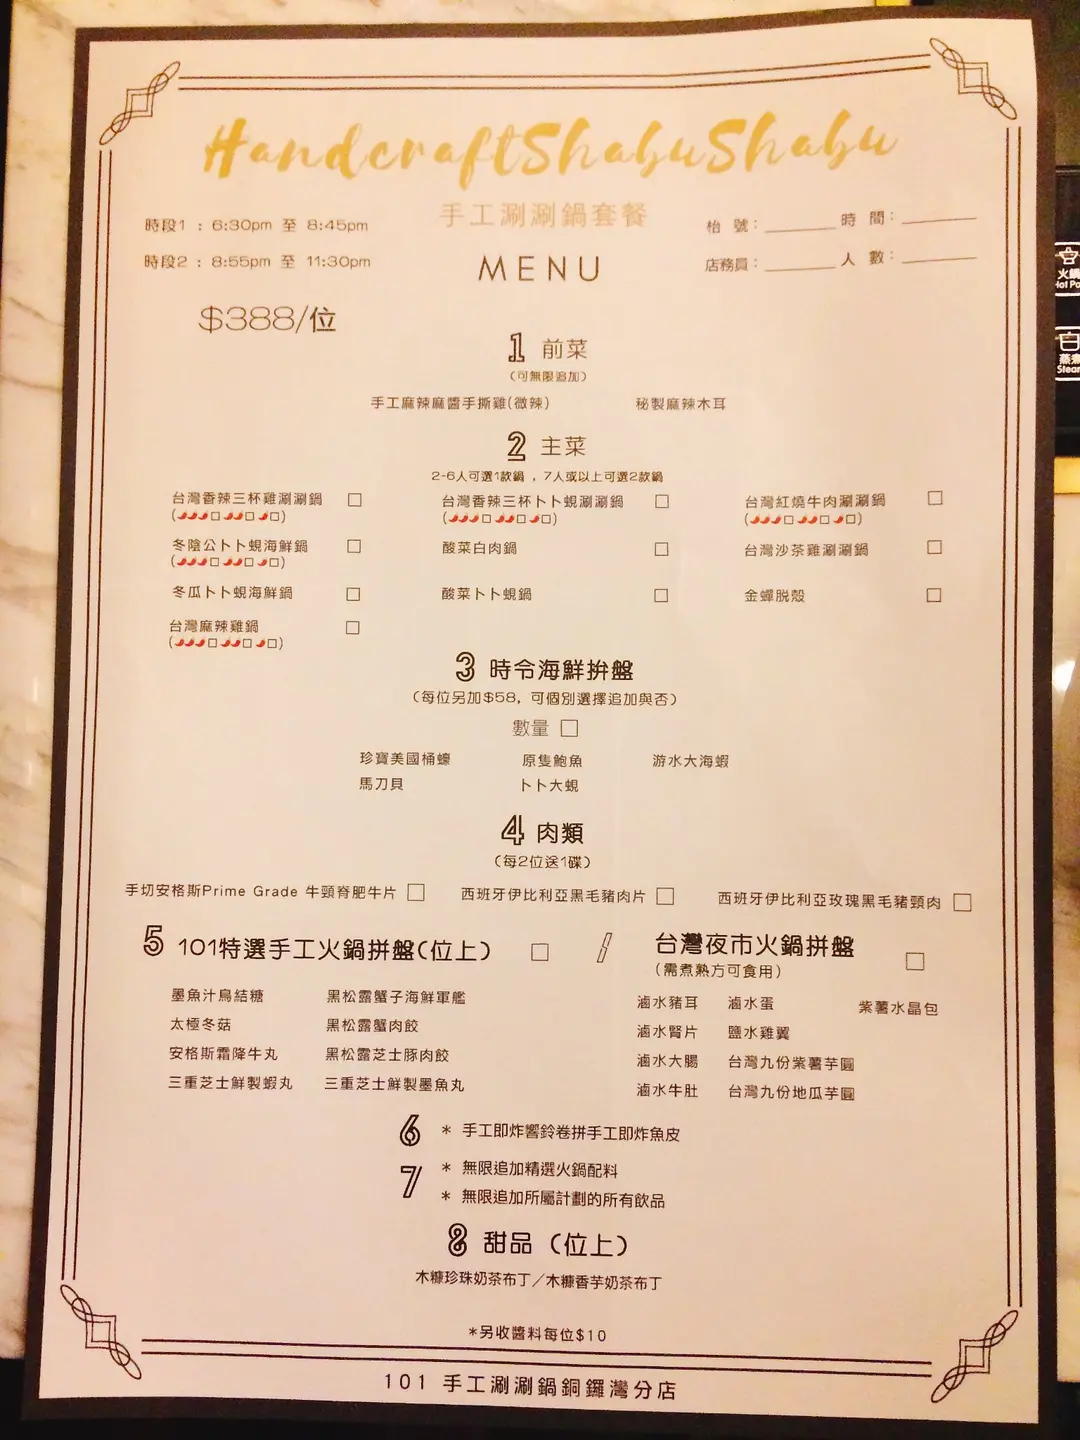 HandcraftShabuShabu
手工涮涮鍋套餐
MENU
時段1 : 6:30pm 至 8:45pm
時段2 : 8:55pm 至 11:30pm
枱 號： 時 間：
店務員： 人 數：
$388/位
1 前菜
(可無限追加)
手工麻辣麻醬手撕雞(微辣) 秘製麻辣木耳
2 主菜
2-6人可選1款鍋 , 7人或以上可選2款鍋
台灣香辣三杯雞涮涮鍋 台灣香辣三杯卜卜蜆涮涮鍋 台灣紅燒牛肉涮涮鍋
冬陰公卜卜蜆海鮮鍋 酸菜白肉鍋 台灣沙茶雞涮涮鍋
冬瓜卜卜蜆海鮮鍋 酸菜卜卜蜆鍋 金蟬脱殼
台灣麻辣雞鍋
3 時令海鮮拚盤
(每位另加$58, 可個別選擇追加與否)
數量
珍寶美國桶蠔 原隻鮑魚 游水大海蝦
馬刀貝 卜卜大蜆
4 肉類
(每2位送1碟)
手切安格斯Prime Grade 牛頸脊肥牛片 西班牙伊比利亞黑毛豬肉片 西班牙伊比利亞玫瑰黑毛豬頸肉
5 101特選手工火鍋拼盤(位上) / 台灣夜市火鍋拼盤
(需煮熟方可食用)
墨魚汁鳥結糖 黑松露蟹子海鮮軍艦 滷水豬耳 滷水蛋 紫薯水晶包
太極冬菇 黑松露蟹肉餃 滷水腎片 鹽水雞翼
安格斯霜降牛丸 黑松露芝士豚肉餃 滷水大腸 台灣九份紫薯芋圓
三重芝士鮮製蝦丸 三重芝士鮮製墨魚丸 滷水牛肚 台灣九份地瓜芋圓
6 * 手工即炸響鈴卷拼手工即炸魚皮
7 * 無限追加精選火鍋配料
* 無限追加所屬計劃的所有飲品
8 甜品 (位上)
木糠珍珠奶茶布丁／木糠香芋奶茶布丁
*另收醬料每位$10
101 手工涮涮鍋銅鑼灣分店
火鍋